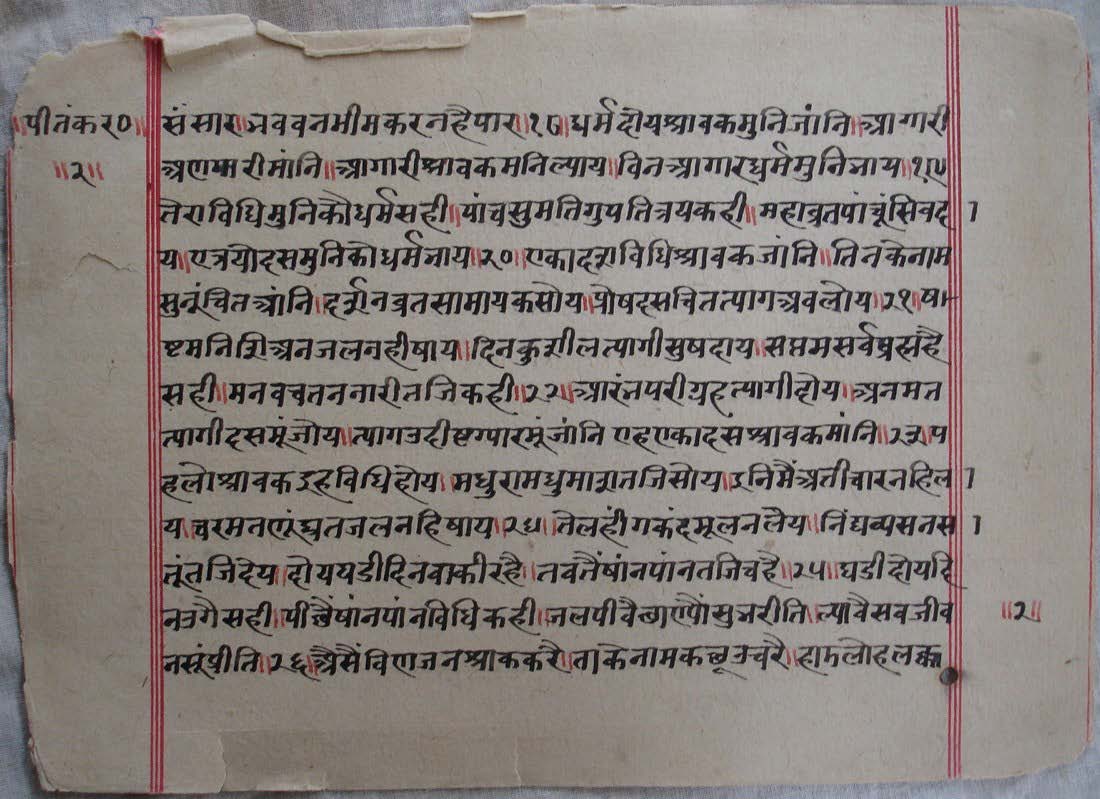 ॥पीतंकर०॥
॥२॥
संसार॥भववनभीमकरनहैपार॥१८॥धर्मदोयश्रावकमुनिजांनि॥आगारी
अणगारीमांनि॥आगारीश्रावकमनिल्याय॥विनआगारधर्ममुनिभाय॥१९॥
तेराविधिमुनिकौधर्मसही॥पांचसुमतिगुपतित्रयकही॥महाव्रतपांचूंसिवद
य॥एत्रयोदसमुनिकोधर्मभाय॥२०॥एकादशविधिश्रावकजांनि॥तिनकेनाम
सुनूंचितआंनि॥दर्शनव्रतसामायकसोय॥प्रोषदसचितत्यागअवलोय॥२१॥षा
ष्टमनिशिअनजलनहीषाय॥दिनकुशीलत्यागीसुषदाय॥सप्तमसर्वब्रह्महै
सही॥मनवचतननारीतजिकही॥२२॥आरंभपरीग्रहत्यागीहोय॥अनमत
त्यागीदसमूंजोय॥त्यागउदीष्टग्यारमूंजांनि एहएकादसश्रावकमांनि॥२३॥प
हलोश्रावकइहविधिहोय॥मधुरामधुमाशतजिसोय॥इनिमैंअतीचारनहिल
य॥चरमतणूंघ्रतजलनहिषाय॥२४॥तेलहींगकंदमूलनलैय॥निंद्यव्यसनस
तूंतजिदेय॥दोयघडीदिनवाकीरहै॥तवतैंषांनपांनतजिचहै॥२५॥घडीदोयदि
नउगैसही॥पीछैषांनपांनविधिकही॥जलपीवैछाणैंसुभरीति॥ल्यावैसवजीव
नसूंप्रीति॥२६॥अैसैंविणजनश्राककरै॥ताकेनामकछूउचरै॥हाडलोहलक्क
॥२॥